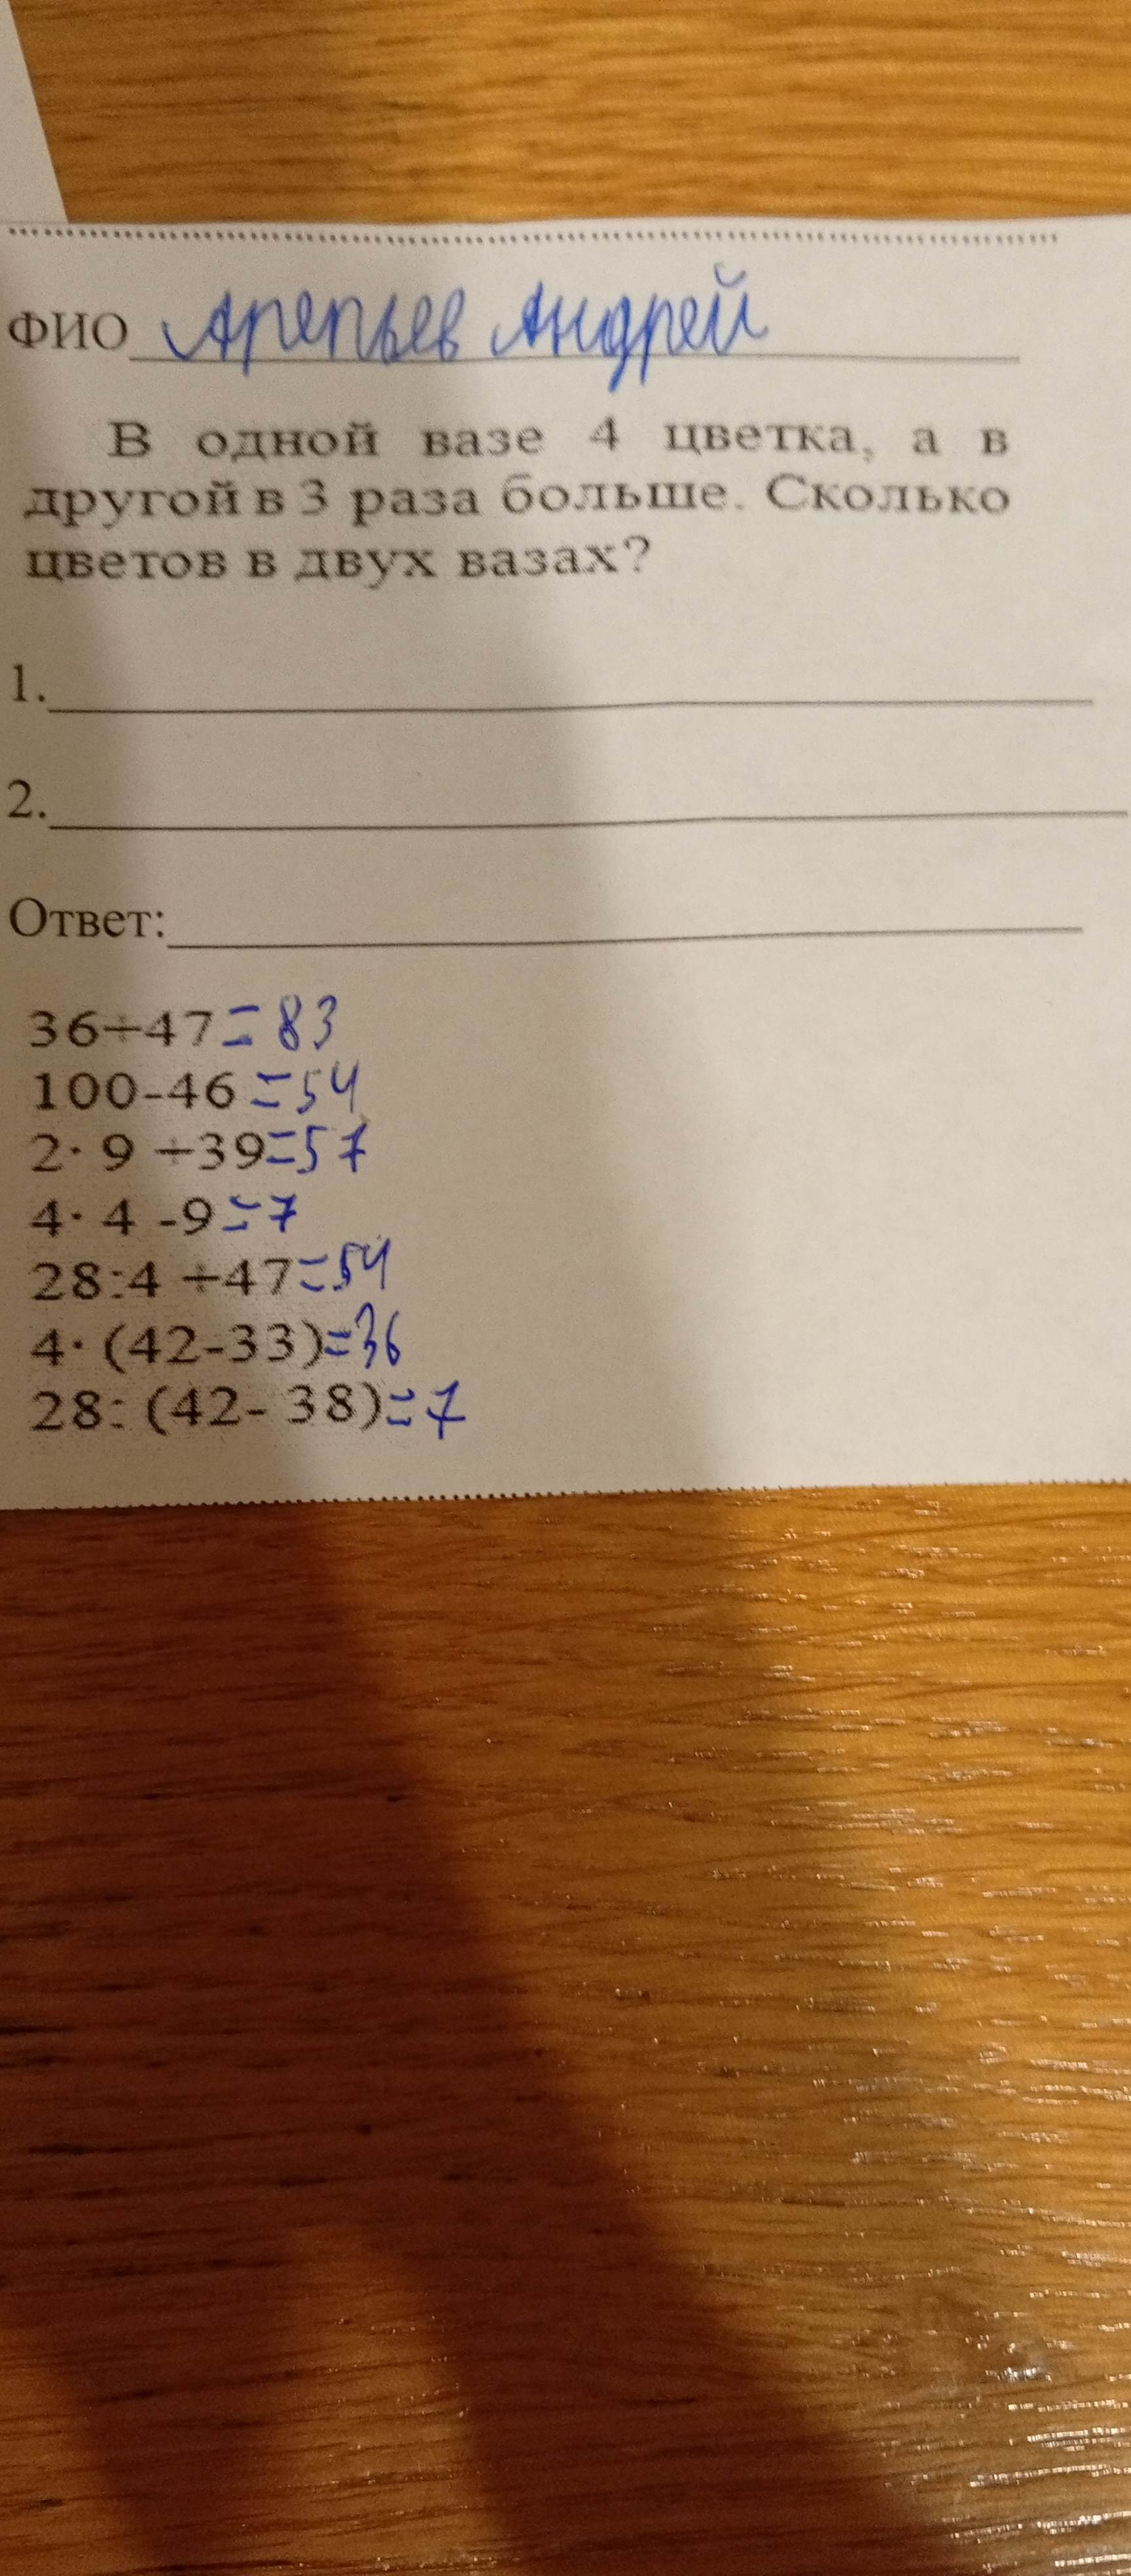 ФИО Арепьев Андрей
В одной вазе 4 цветка, а в
другой в 3 раза больше. Сколько
цветов в двух вазах?
1.
2.
Ответ:
36÷47=83
100-46=54
2· 9 ÷39=57
4· 4 -9=7
28:4 ÷47=54
4· (42-33)=36
28: (42- 38)=7